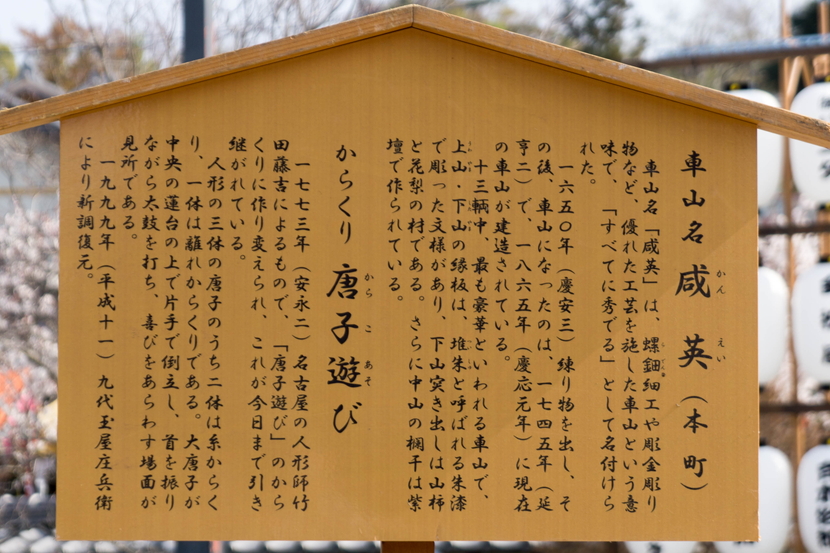 車山名 咸英（本町）
車山名「咸英」は、螺鈿細工や彫金彫り
物など、優れた工芸を施した車山という意
味で、「すべてに秀でる」として名付けら
れた。
一六五〇年（慶安三）練り物を出し、そ
の後、車山になったのは、一七四五年（延
亨二）で、一八六五年（慶応元年）に現在
の車山が建造されている。
十三輌中、最も豪華といわれる車山で、
上山・下山の縁板は、堆朱と呼ばれる朱漆
で彫った文様があり、下山突き出しは山柿
と花梨の材である。さらに中山の欄干は紫
壇で作られている。
からくり 唐子遊び
一七七三年（安永二）名古屋の人形師竹
田藤吉によるもので、「唐子遊び」のから
くりに作り変えられ、これが今日まで引き
継がれている。
人形の三体の唐子のうち二体は糸からく
り、一体は離れからくりである。大唐子が
中央の蓮台の上で片手で倒立し、首を振り
ながら太鼓を打ち、喜びをあらわす場面が
見所である。
一九九九年（平成十一）九代玉屋庄兵衛
により新調復元。